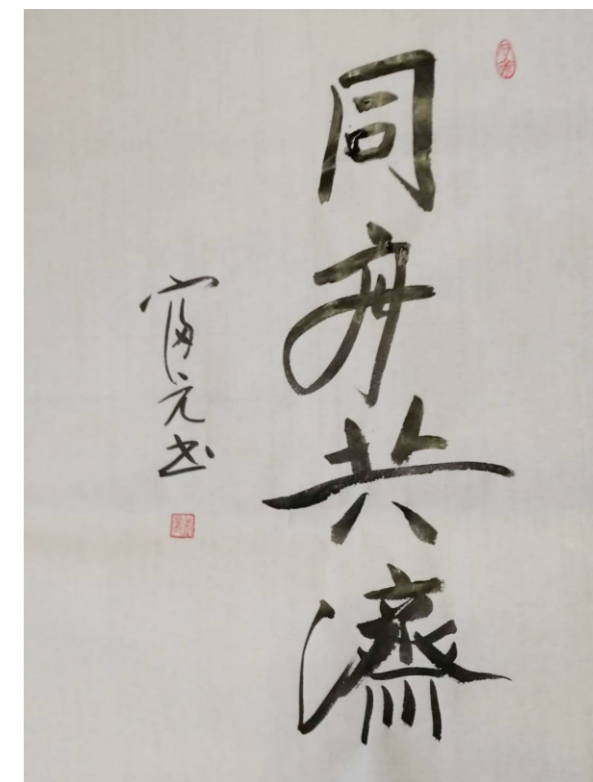 同舟共濟
富元书